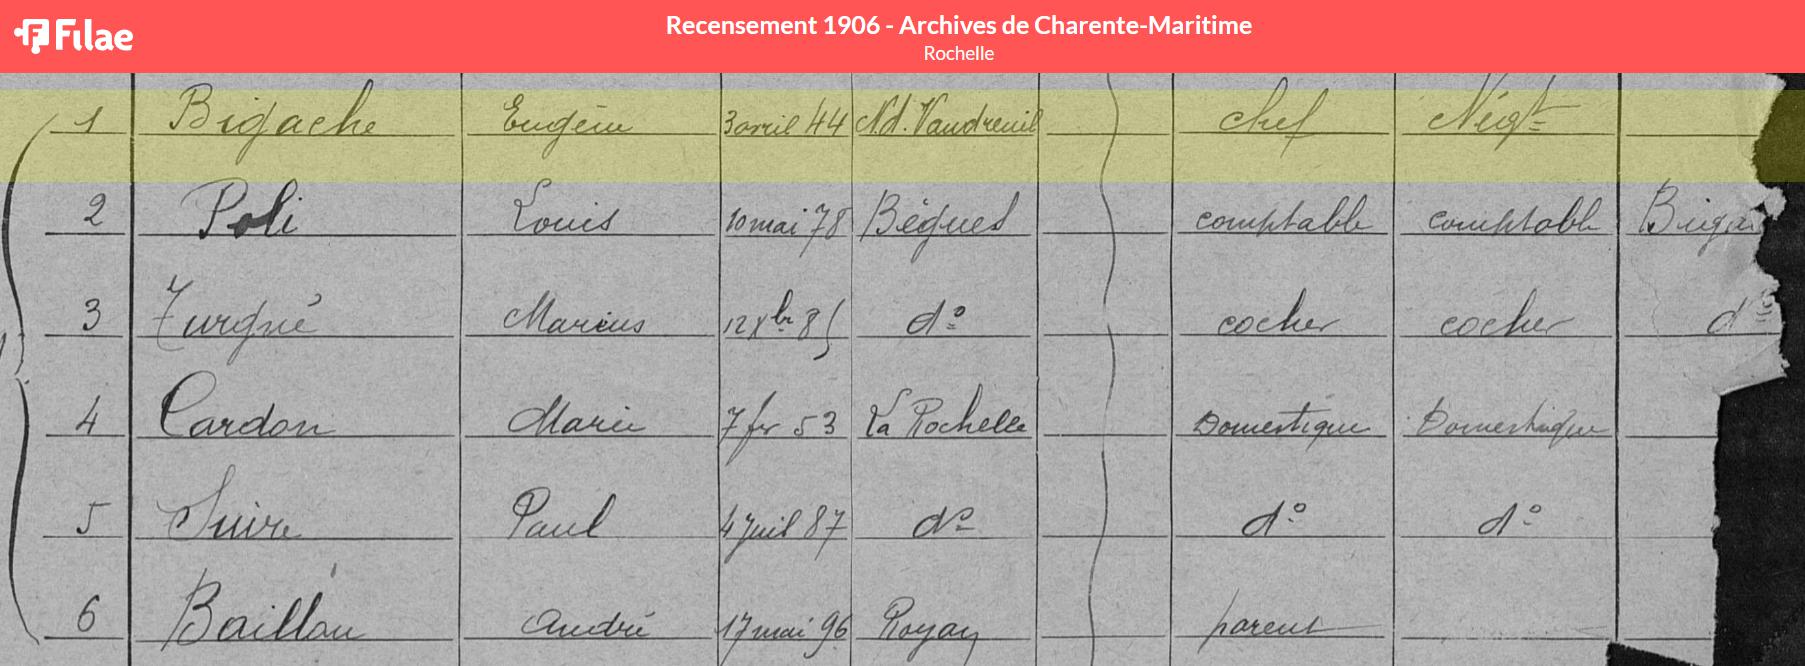 Filae
Recensement 1906 - Archives de Charente-Maritime
Rochelle
1 Bigache Eugène 3 avril 44 N.d. Vaudreuil chef Négt
2 Poli Louis 10 mai 78 Bègues comptable comptable Biga
3 Turgné Marius 12 Xbr 85 do cocher cocher do
4 Cardon Marie 7 fr 53 La Rochelle Domestique Domestique
5 Suire Paul 4 Juil 87 do do do
6 Baillou André 17 mai 96 Royan parent